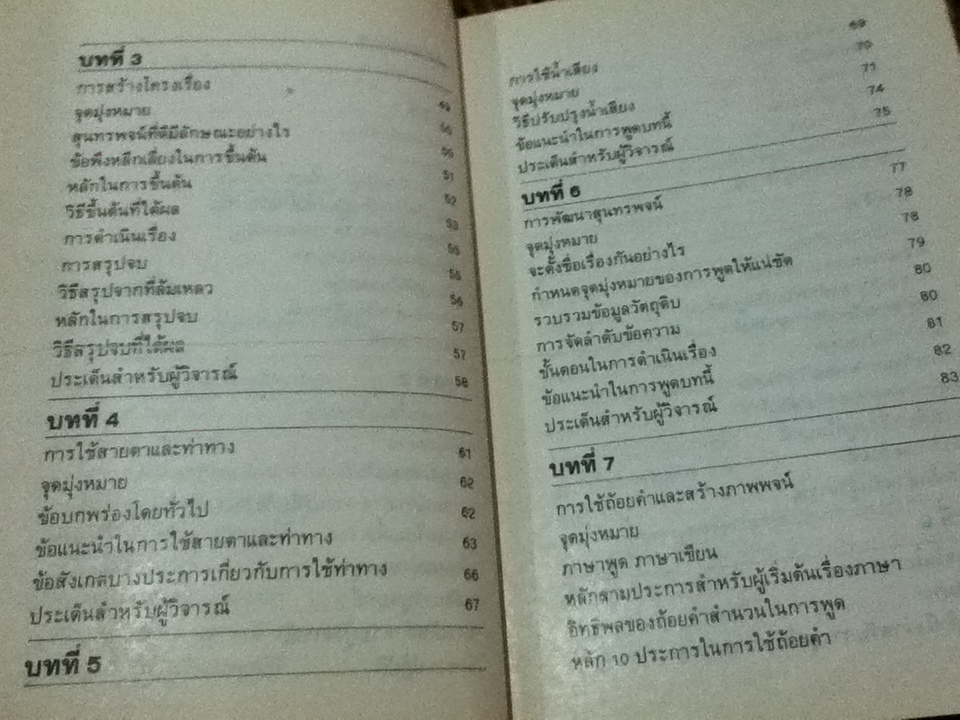 บทที่ 3
การสร้างโครงเรื่อง
จุดมุ่งหมาย 49
สุนทรพจน์ที่ดีมีลักษณะอย่างไร 50
ข้อพึงหลีกเลี่ยงในการขึ้นต้น 50
หลักในการขึ้นต้น 51
วิธีขึ้นต้นที่ได้ผล 52
การดำเนินเรื่อง 53
การสรุปจบ 55
วิธีสรุปจากที่ล้มเหลว 55
หลักในการสรุปจบ 56
วิธีสรุปจบที่ได้ผล 57
ประเด็นสำหรับผู้วิจารณ์ 57
58
บทที่ 4
การใช้สายตาและท่าทาง 61
จุดมุ่งหมาย 62
ข้อบกพร่องโดยทั่วไป 62
ข้อแนะนำในการใช้สายตาและท่าทาง 63
ข้อสังเกตบางประการเกี่ยวกับการใช้ท่าทาง 66
ประเด็นสำหรับผู้วิจารณ์ 67
บทที่ 5
การใช้น้ำเสียง 69
จุดมุ่งหมาย 70
วิธีปรับปรุงน้ำเสียง 71
ข้อแนะนำในการพูดบทนี้ 74
ประเด็นสำหรับผู้วิจารณ์ 75
บทที่ 6
การพัฒนาสุนทรพจน์ 77
จุดมุ่งหมาย 78
จะตั้งชื่อเรื่องกันอย่างไร 78
กำหนดจุดมุ่งหมายของการพูดให้แน่ชัด 79
รวบรวมข้อมูลวัตถุดิบ 80
การจัดลำดับข้อความ 80
ขั้นตอนในการดำเนินเรื่อง 81
ข้อแนะนำในการพูดบทนี้ 82
ประเด็นสำหรับผู้วิจารณ์ 83
บทที่ 7
การใช้ถ้อยคำและสร้างภาพพจน์
จุดมุ่งหมาย
ภาษาพูด ภาษาเขียน
หลักสามประการสำหรับผู้เริ่มต้นเรื่องภาษา
อิทธิพลของถ้อยคำสำนวนในการพูด
หลัก 10 ประการในการใช้ถ้อยคำ